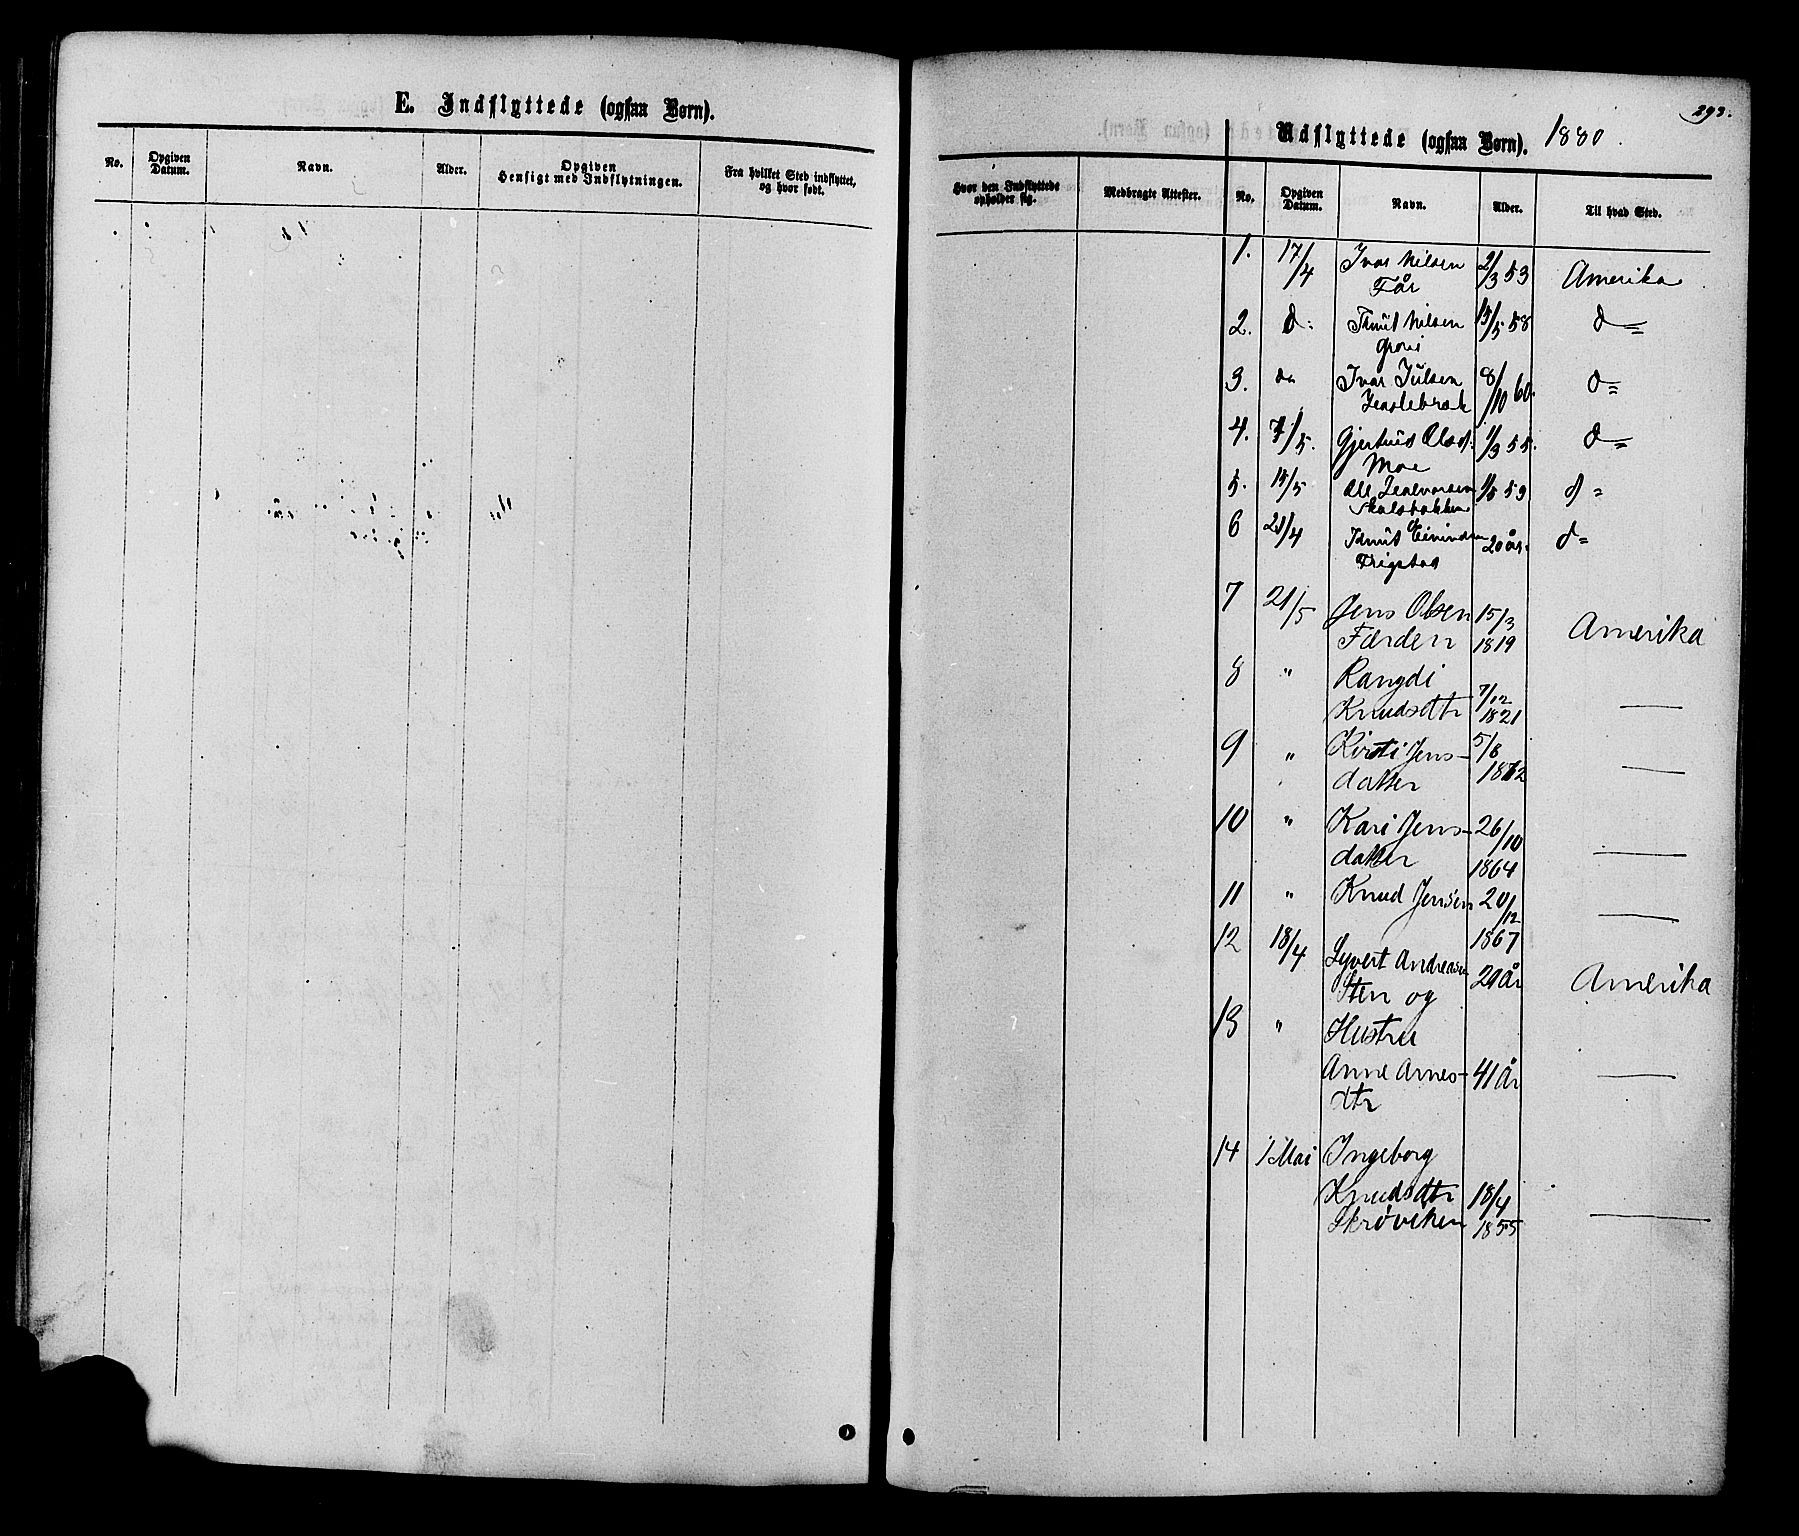 E. Indflyttede (ogsaa Børn).
No.
Opgiven Datum.
Navn.
Alder.
Opgiven Hensigt med Indflytningen.
Fra hvilket Sted indflyttet, og hvor født.
293.
Udflyttede (ogsaa Børn). 1880.
Hvor den Indflyttede opholder sig.
Medbragte Attester.
No.
Opgiven Datum.
Navn.
Alder.
Til hvad Sted.
1. 17/4 Ivar Nilsen 2/3 53 Amerika
2. d: Knut Nilsen 15/5 58 d=
3. do Ivar Julsen 8/10 60. d=
4. 7/5. Gjertrud Olsd: 1/3 55. d=
Moe
5. 15/5 59 d=
6 21/4 Knut Eivindsen 20 år. d=
Trigstad
7 21/5 Jens Olsen 15/3
Færden 1819 Amerika
8 " Rangdi
Knudsdtr 7/12 1821 —
9 " Kirsti Jens- 5/8
datter 1862 —
10 " Kari Jens- 26/10
datter 1864 —
11 " Knud Jensen 20/12
1867 —
12 18/4 Syvert Andreasen
Sten og 29 år Amerika
13 " Hustru
Anne Arnes- 41 år —
dtr
14 1 Mai Ingeborg
Knudsdtr 18/4
Skrøviken 1855 —